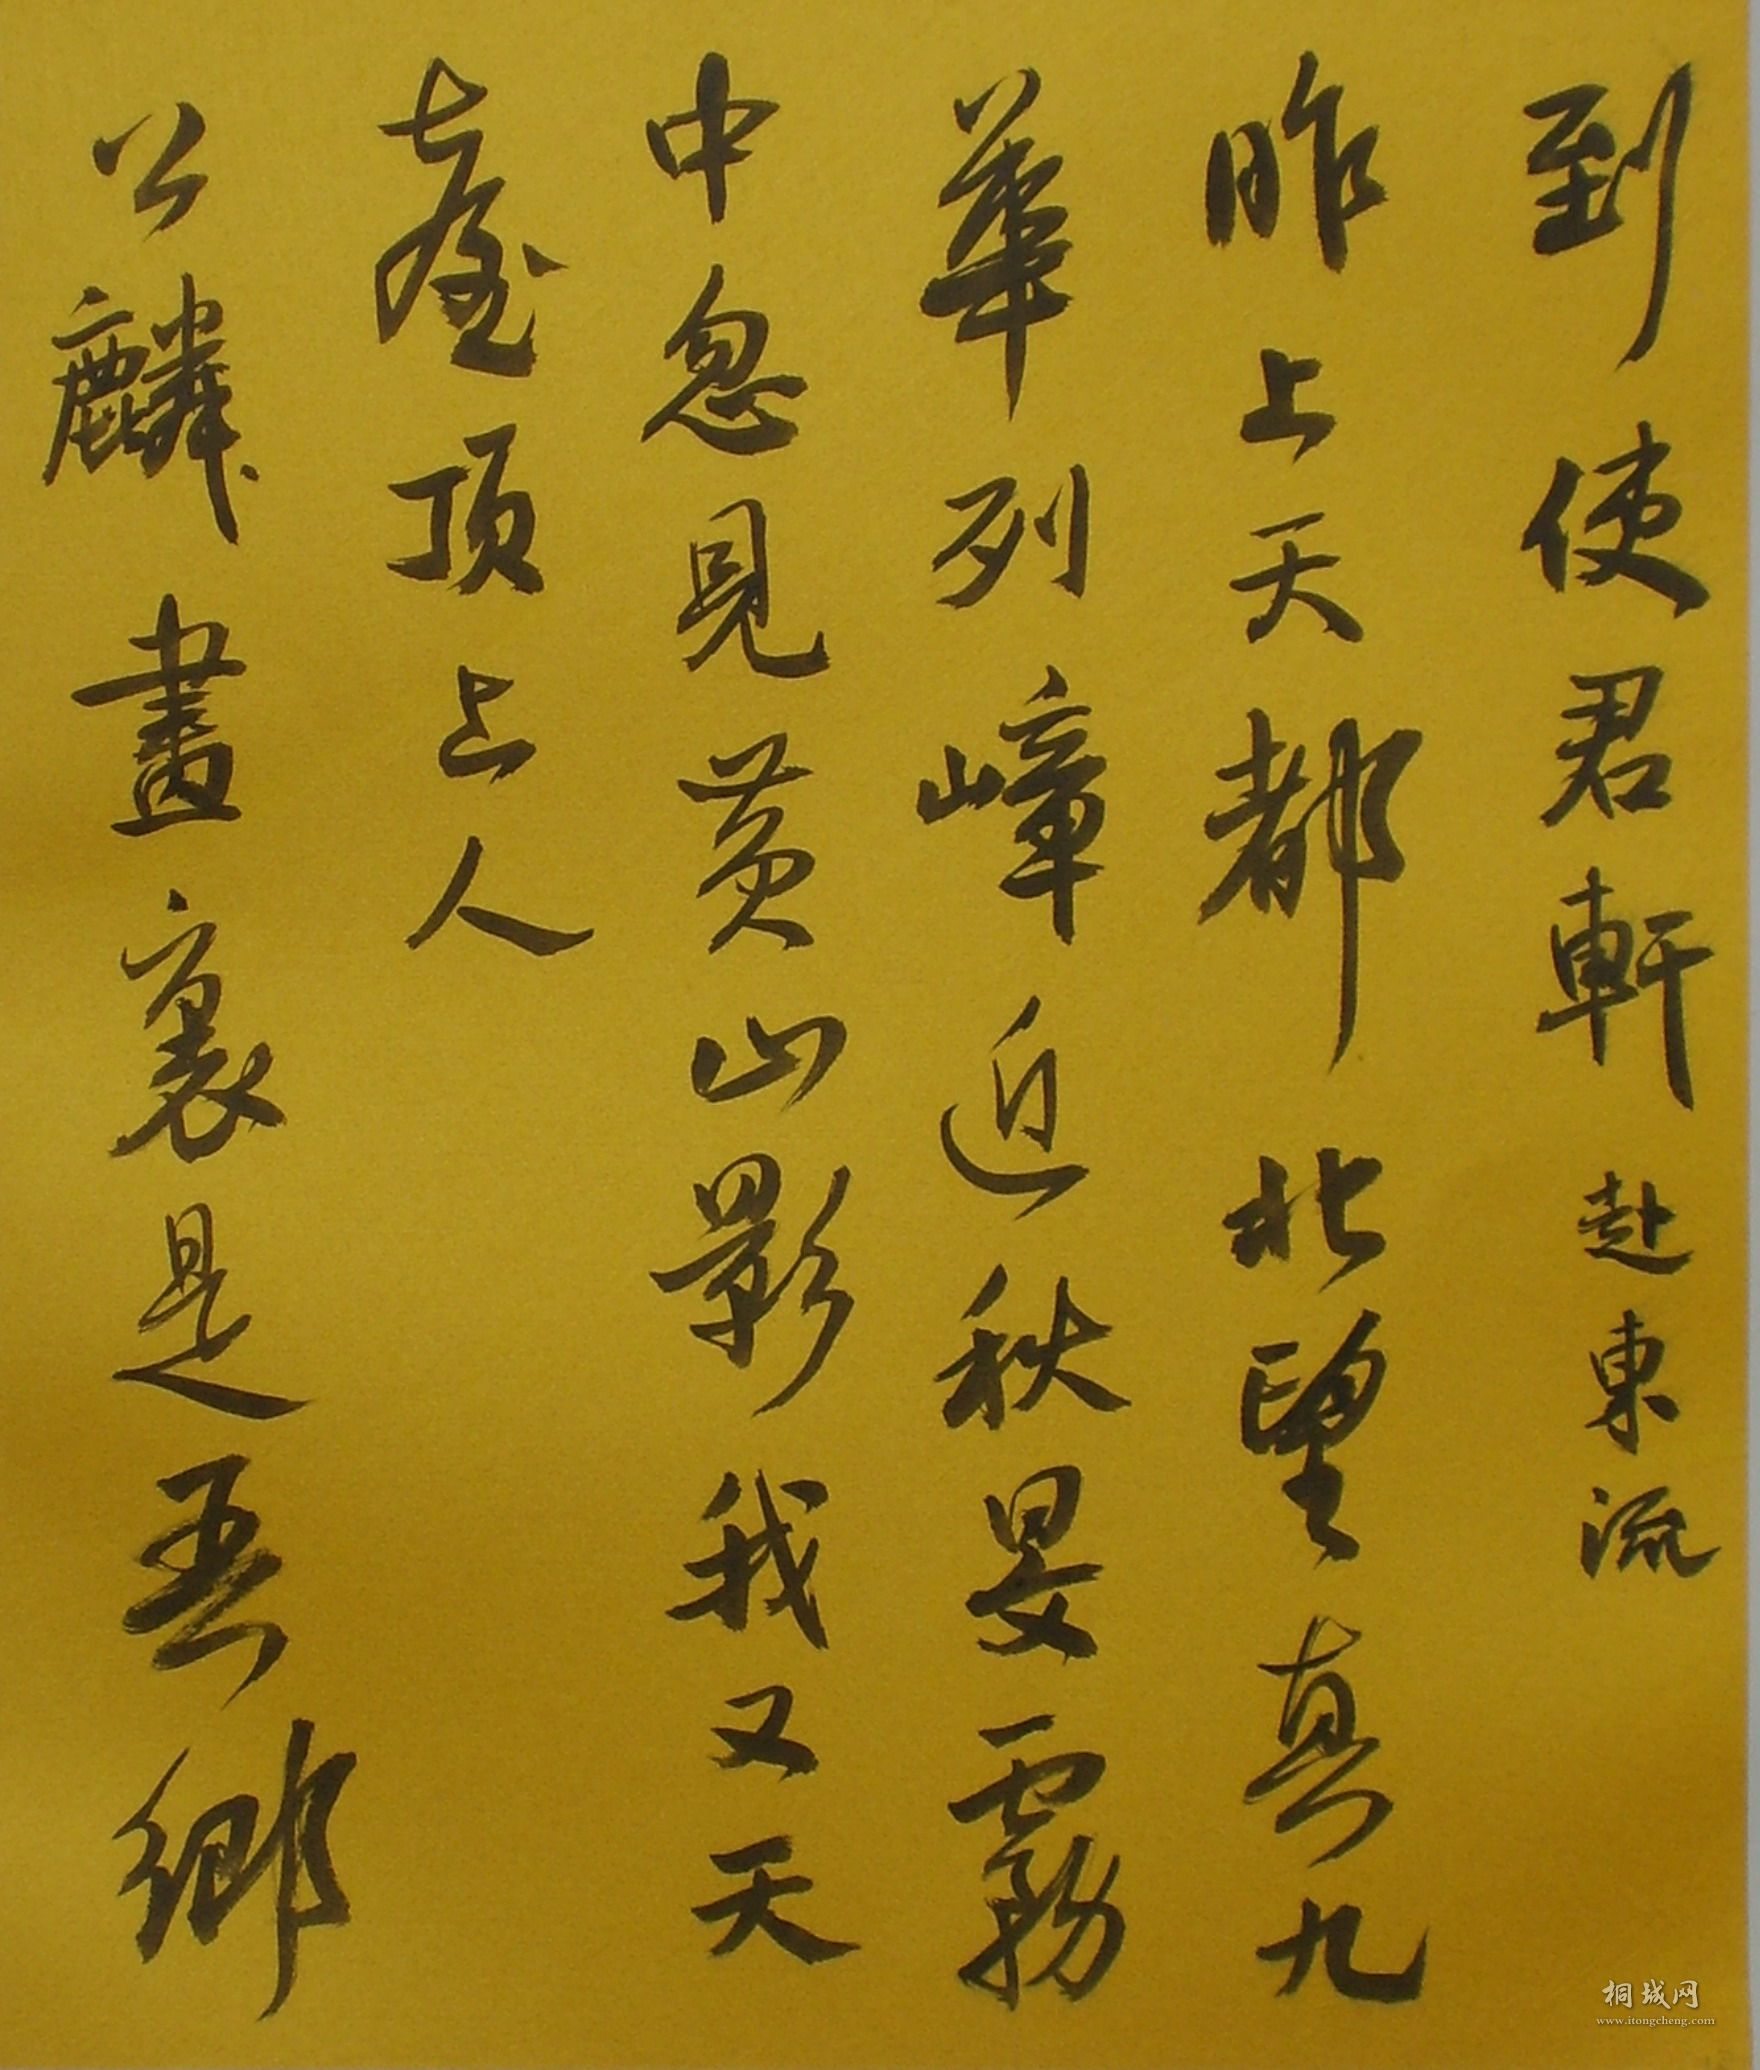 到使君軒赴東流
昨上天都北望真九
華列嶂近秋旻霧
中忽見黃山影我又天
臺頂上人
公麟畫裏是吾鄉
桐城网
www.itongcheng.com